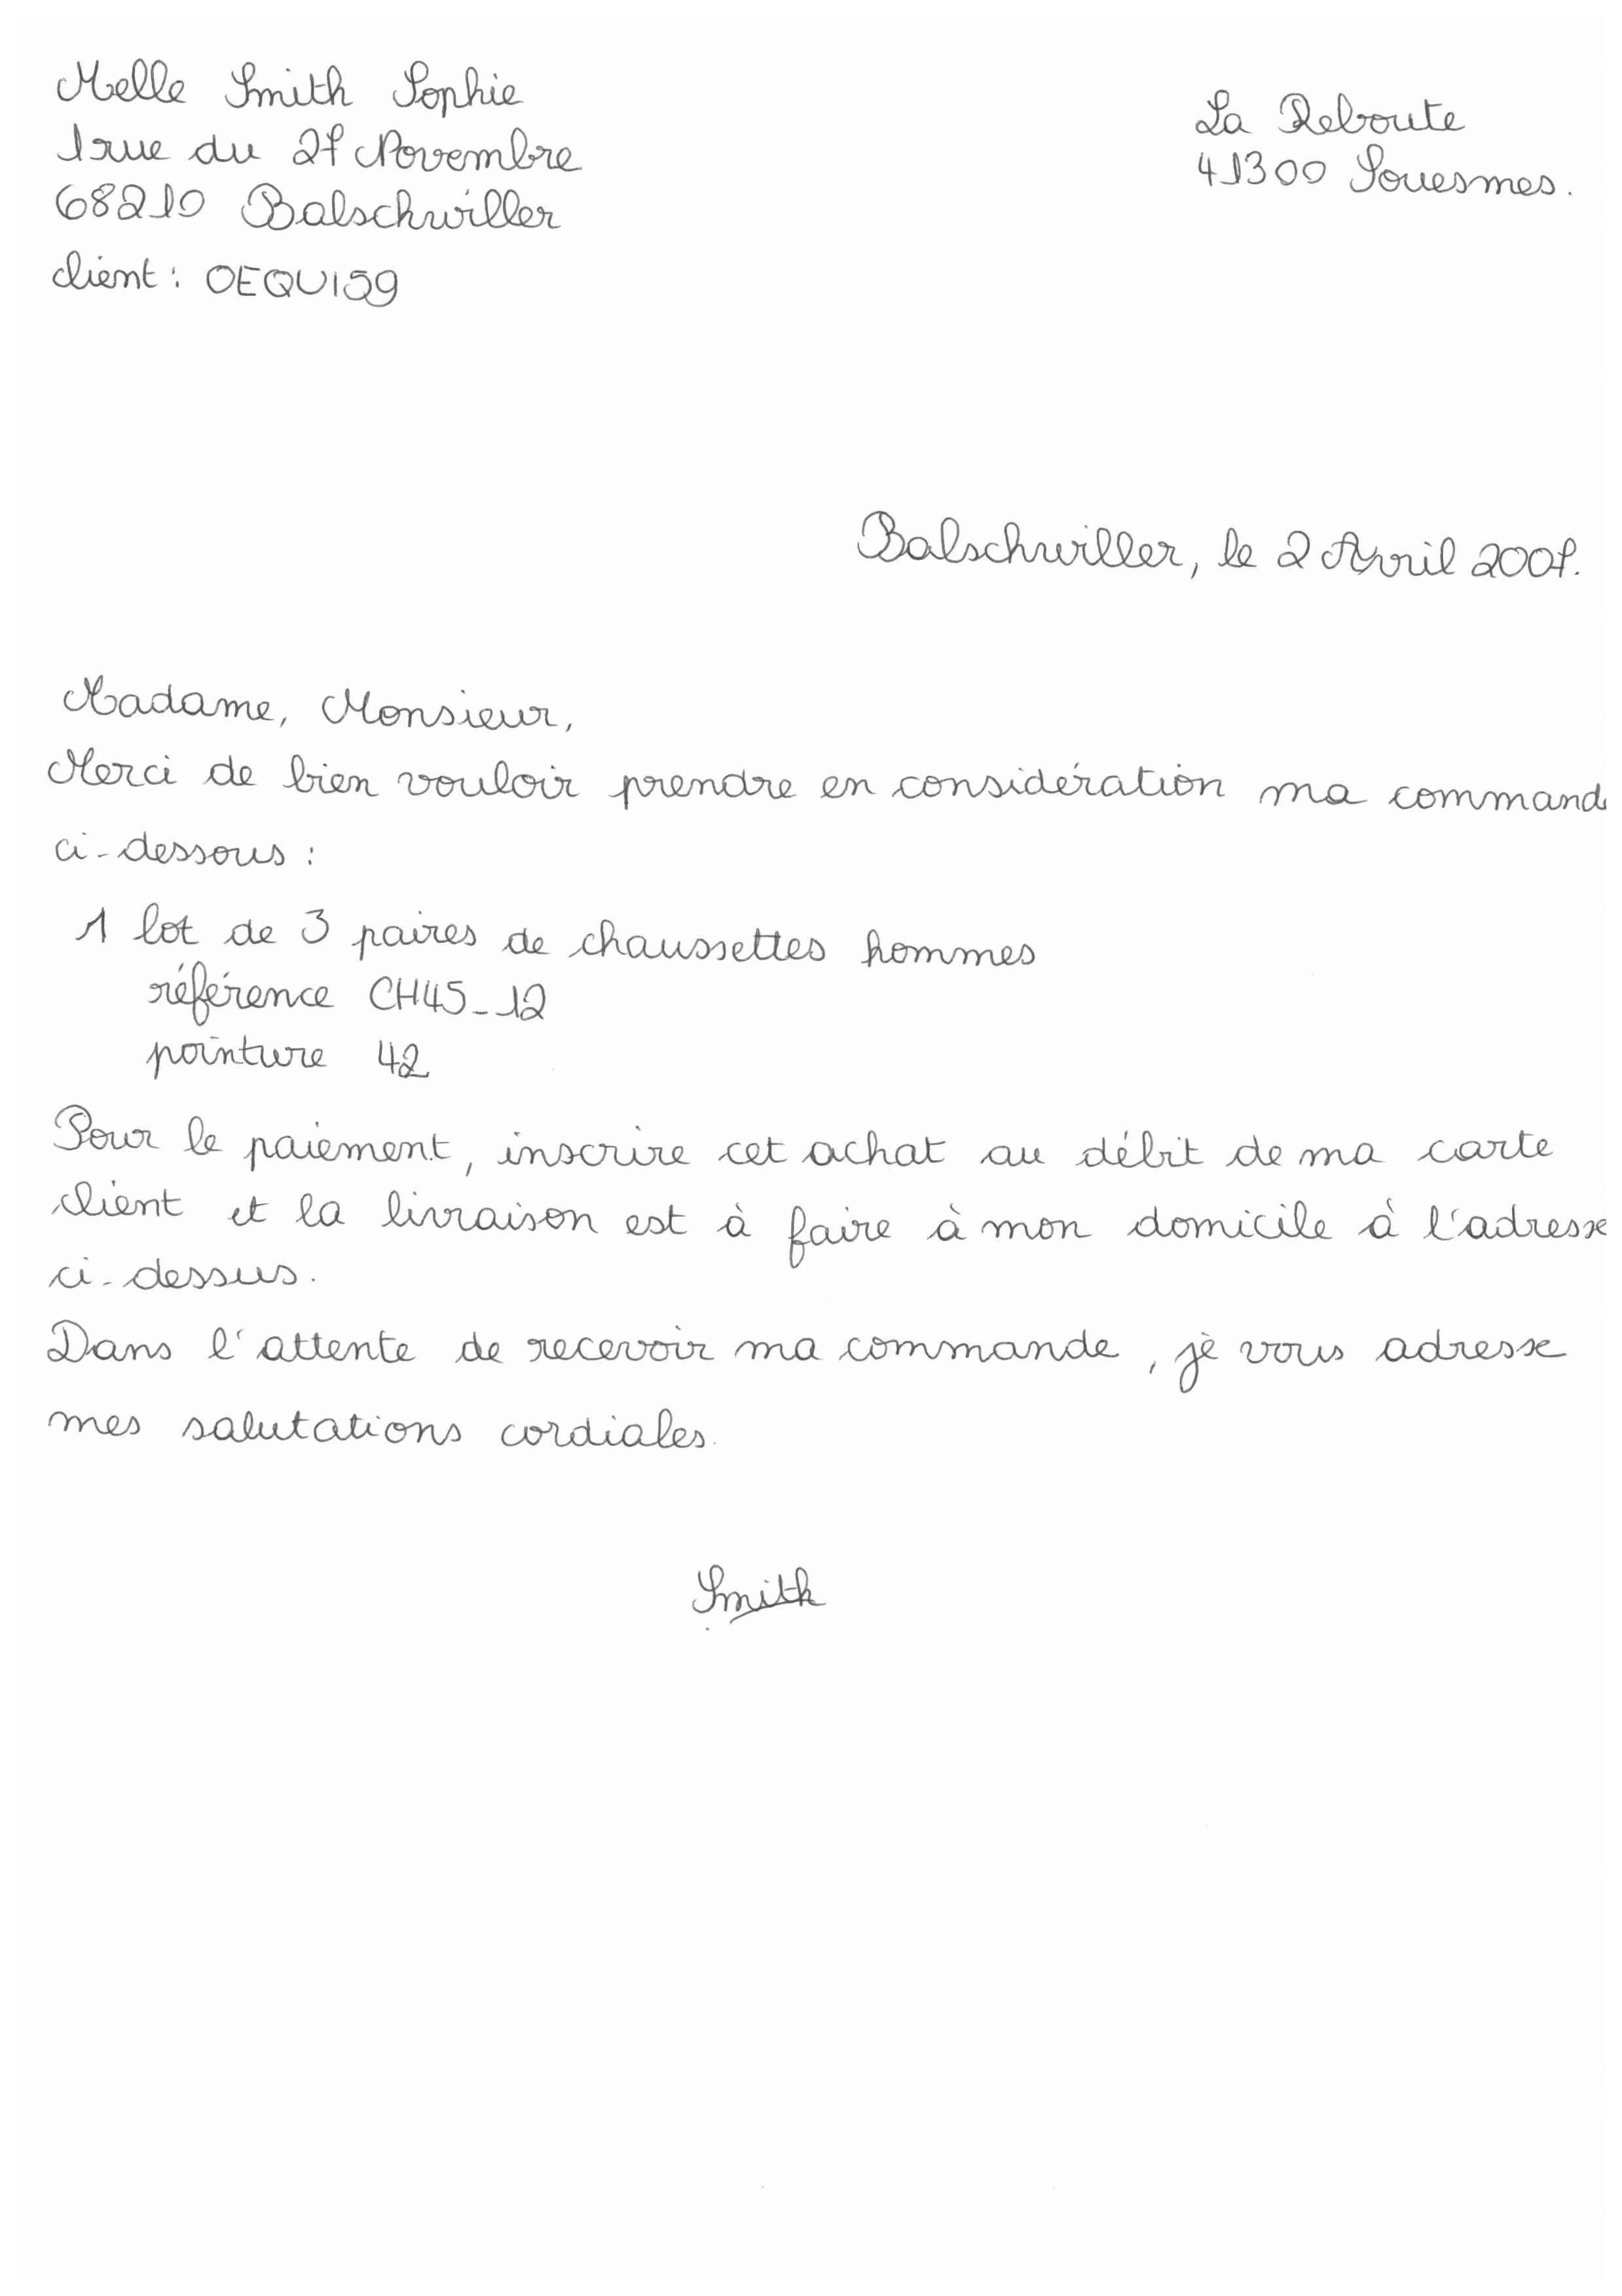 Melle Smith Sophie
1 rue du 27 Novembre
68210 Balschwiller
client : OEQUI59
La Reboute
41300 Souesmes.
Balschwiller, le 2 Avril 2007.
Madame, Monsieur,
Merci de bien vouloir prendre en considération ma command
ci-dessous :
1 lot de 3 paires de chaussettes hommes
référence CH45-12
pointure 42
Pour le paiement, inscrire cet achat au débit de ma carte
client et la livraison est à faire à mon domicile à l'adresse
ci-dessus.
Dans l'attente de recevoir ma commande, je vous adresse
mes salutations cordiales.
Smith